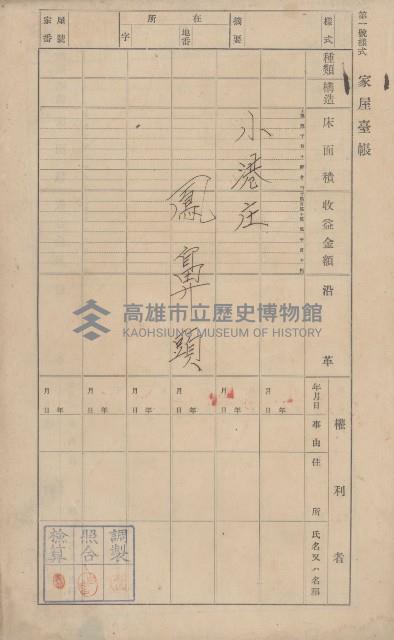 第一號樣式
家屋臺帳
樣式
摘要
所在
地番
字
屋號
家番
種類
構造
床面積
收益金額
沿革
小港庄
鳳鼻頭
高雄市立歷史博物館
KAOHSIUNG MUSEUM OF HISTORY
權利者
年月日
事由
住所
氏名又ハ名稱
年月日
年月日
年月日
年月日
年月日
年月日
調製
照合
檢算